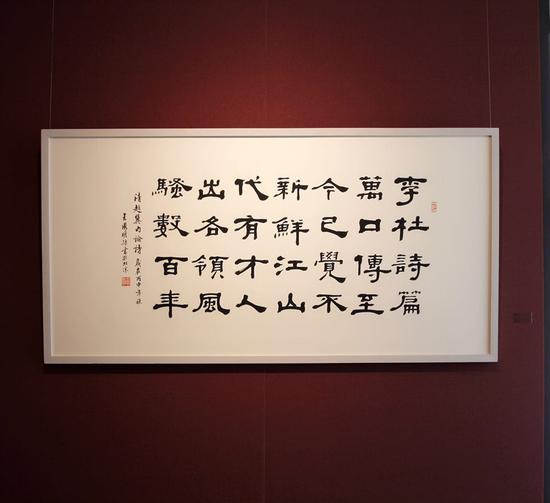 李杜詩篇
萬口傳至
今已覺不
新鮮江山
代有才人
出各領風
騷數百年
清趙翼論詩